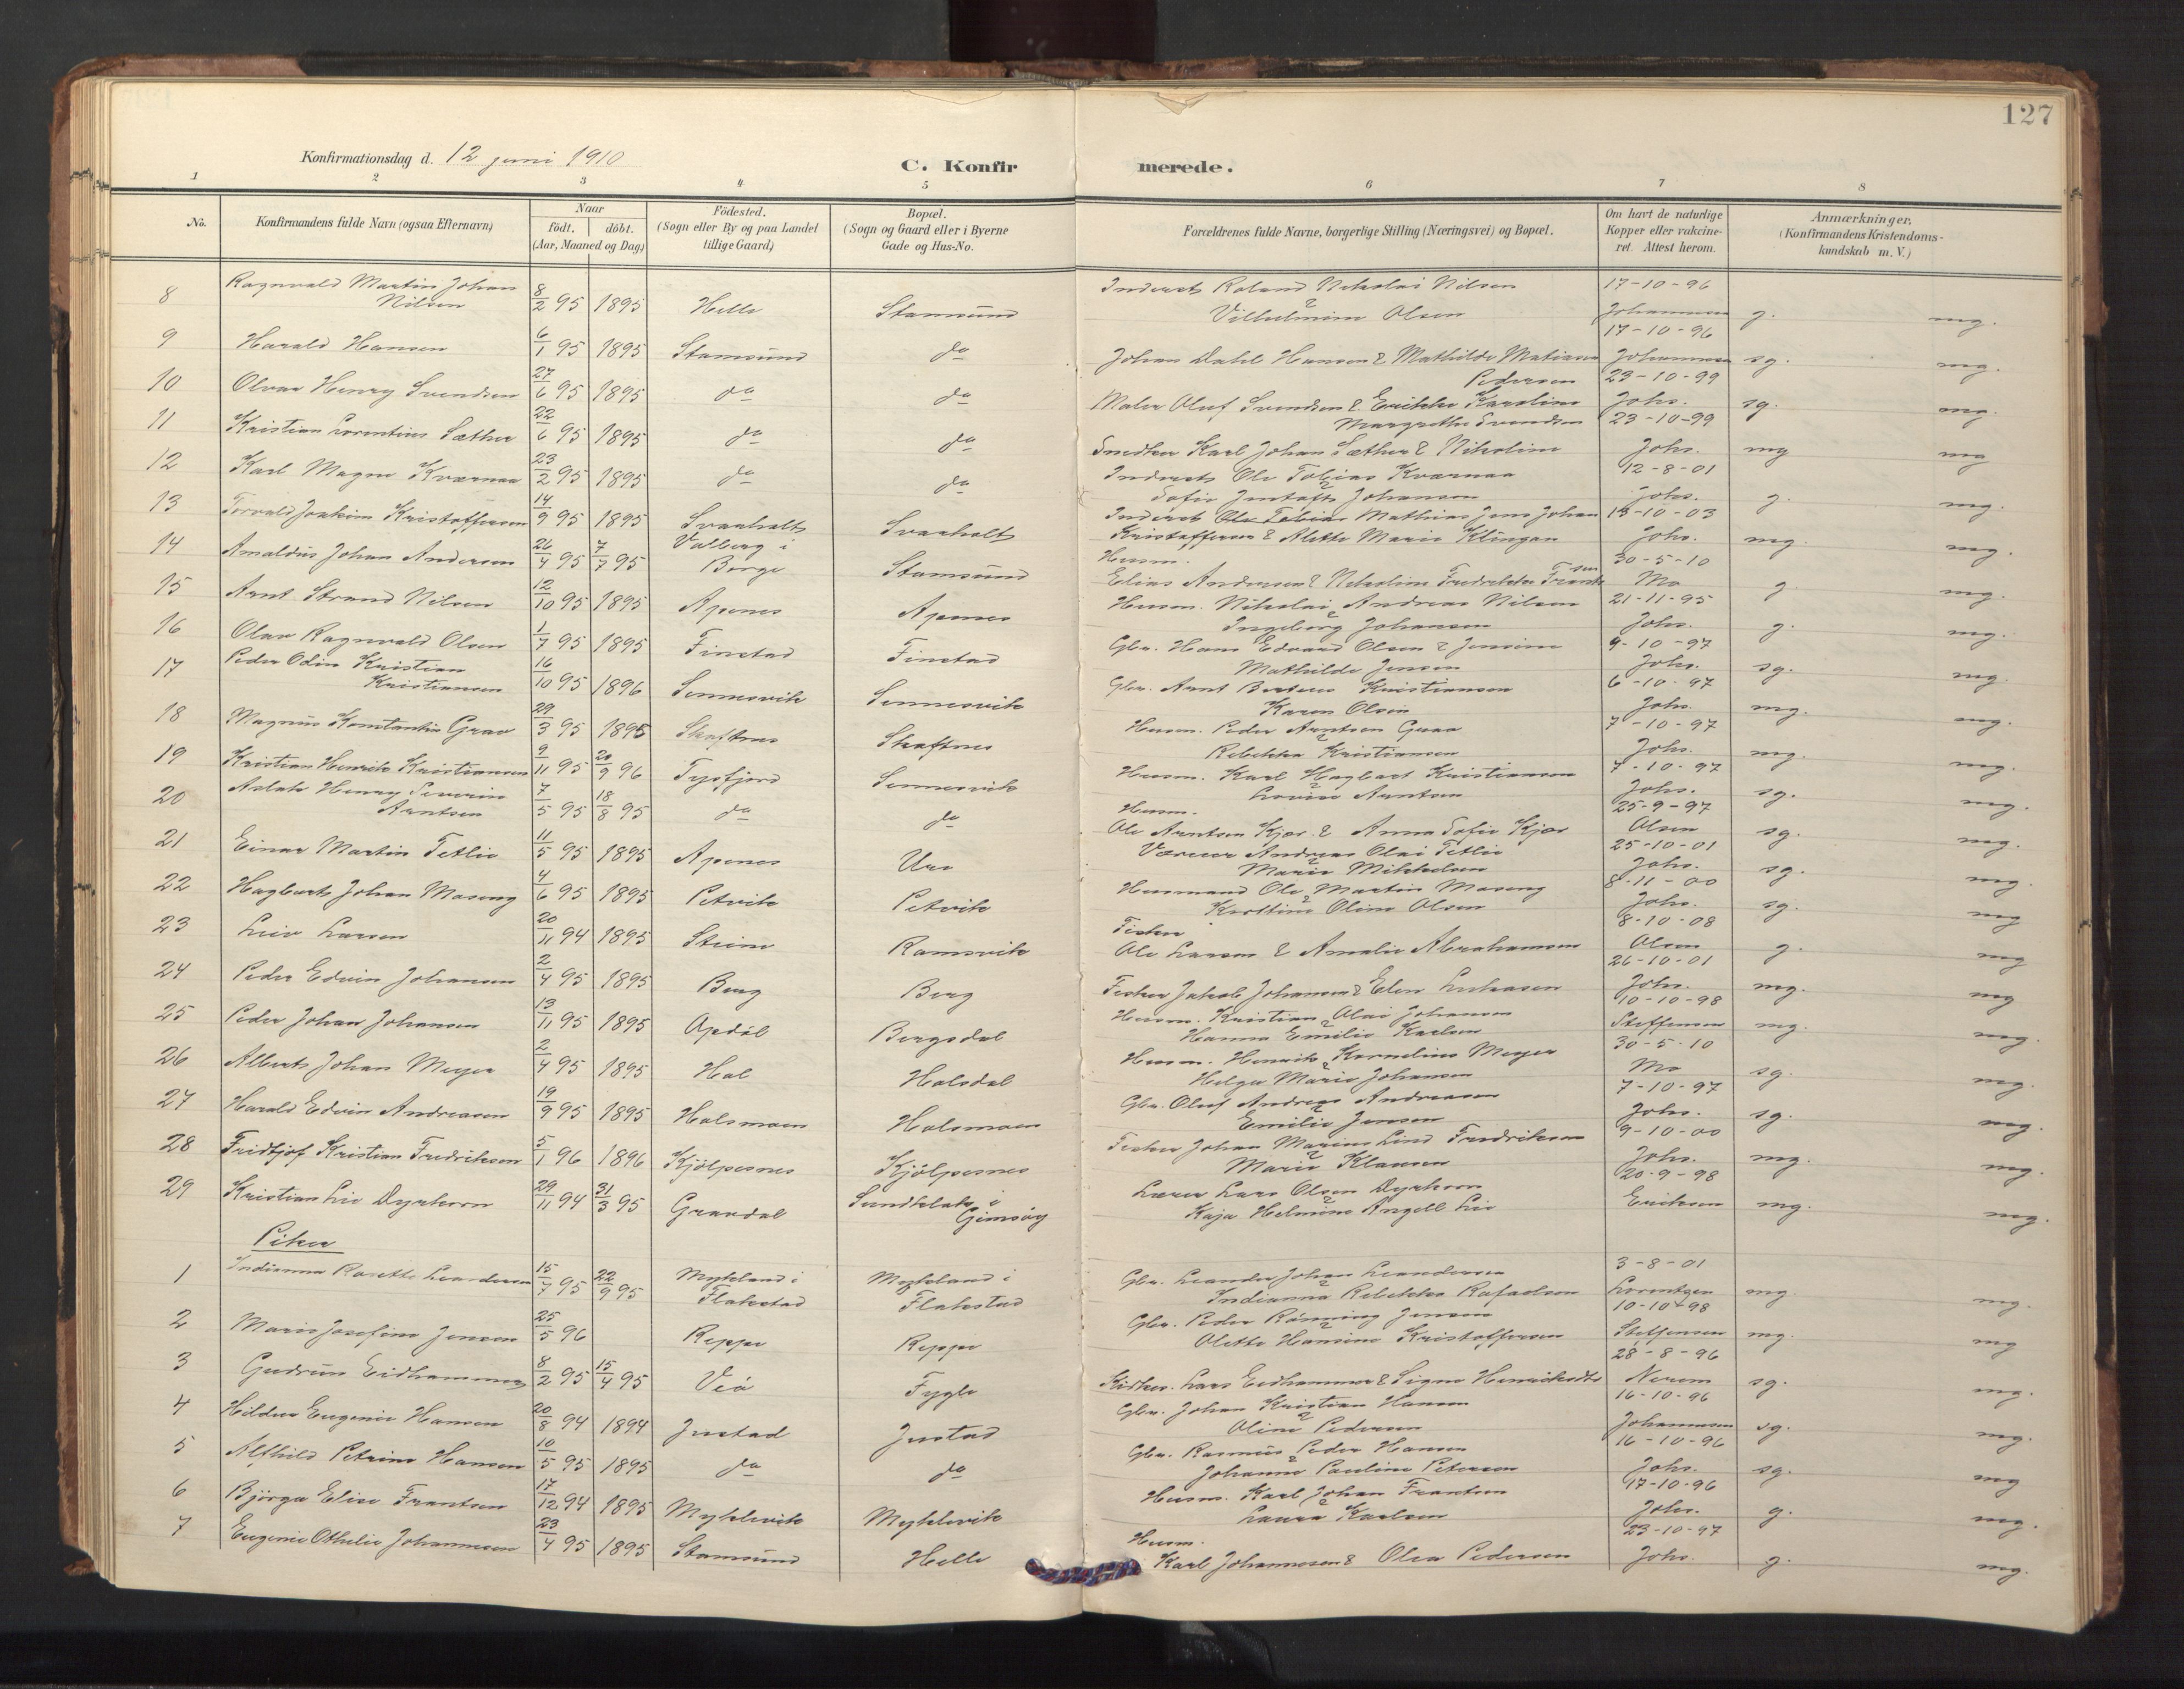 127
Konfirmationsdag d. 12 juni 1910
C. Konfirmerede.
1 2 3 4 5 6 7 8
No. Konfirmandens fulde Navn (ogsaa Efternavn) Naar födt. döbt. (Aar, Maaned og Dag) Födested. (Sogn eller By og paa Landet tillige Gaard) Bopæl. (Sogn og Gaard eller i Byerne Gade og Hus-No. Forældrenes fulde Navne, borgerlige Stilling (Næringsvei) og Bopæl. Om havt de naturlige Kopper eller vakcineret. Attest herom. Anmærkninger. (Konfirmandens Kristendomskundskab m. V.)
8 Ragnvald Martin Johan Nilsen 8/2 95 1895 Helle Stamsund Inderst Roland Nikolai Nilsen & Vilhelmine Olsen 17-10-96 Johannesen g. mg.
9 Harald Hansen 6/1 95 1895 Stamsund do Johan Dahl Hansen & Mathilde Matiasen 17-10-96 Johannesen sg. mg.
10 Olvar Henry Svendsen 27/6 95 1895 do do Maler Oluf Svendsen & Erikke Karoline Pedersen 23-10-99 Johs. sg. mg.
11 Kristian Lorentius Sæther 22/6 95 1895 do do Snedker Karl Johan Sæther & Nikoline Margrethe Svendsen 23-10-99 Johs. mg mg
12 Karl Magne Kværnaa 23/2 95 1895 do do Inderst Ole Tobias Kværnaa & Sofie Johansen 12-8-01 Johs. g. mg.
13 Torvald Joakim Kristoffersen 14/9 95 1895 Svaaholt Svaaholt Inderst Mathias Jens Johan Kristoffersen & Alette Marie Klingan 13-10-03 Johs. mg. mg.
14 Amaldus Johan Andersen 26/4 95 7/7 95 Valberg i Borge Stamsund Husm. Elias Andersen & Nikoline Fredrikke Frantsen 30-5-10 Mo g mg.
15 Arnt Strand Nilsen 12/10 95 1895 Apenes Apenes Husm. Nikolai Andreas Nilsen & Ingeborg Johansen 21-11-95 Johs. g. mg.
16 Olav Ragnvald Olsen 1/7 95 1895 Finstad Finstad Gbr. Hans Edvard Olsen & Jensine Mathilde Jensen 9-10-97 Johs. sg. mg.
17 Peder Odin Kristian Kristiansen 16/10 95 1896 Sennesvik Sennesvik Gbr. Arnt Kristiansen Karen Olsen 6-10-97 Johs. mg. mg.
18 Magnus Konstantin Graa 29/3 95 1895 Skaftnes Skaftnes Husm. Peder Arntsen Graa & Rebekka Kristiansen 7-10-97 Johs. mg. mg.
19 Kristian Henrik Kristiansen 9/11 95 20/9 96 Tysfjord Sennesvik Husm. Karl Hagbart Kristiansen Lovise Arntsen 7-10-97 Johs. sg. mg.
20 Aslak Henry Severin Arntsen 7/5 95 18/8 95 do do Husm. Ole Arntsen Kjær & Anna Sofie Kjær 25-9-97 Olsen sg. mg.
21 Einar Martin Tetlie 11/5 95 1895 Apenes Ure Andreas Olai Tetlie & Marie Mikkelsen 25-10-01 Johs. sg. mg.
22 Hagbart Johan Moseng 4/6 95 1895 Petvik Petvik Husmand Ole Martin Moseng & Oline Olsen 8-11-00 Johs. sg. mg
23 Leiv Larsen 20/11 94 1895 Steine Ramsvik Fisker Ole Larsen & Amalie Abrahamsen 8-10-08 Olsen g. mg
24 Peder Edvin Johansen 2/4 95 1895 Berg Berg Fisker Jakob Johansen & Elen Lukasen 26-10-01 Johs. mg. mg
25 Peder Johan Johansen 13/11 95 1895 Opdöl Bergsdal Husm. Kristian Olai Johansen & Hanna Emilie Karlsen 10-10-98 Steffensen mg. mg.
26 Albert Johan Meyer 2/4 95 1895 Hol Holsdal Husm. Henrik Kornelius Meyer & Helga Marie Johansen 30-5-10 Mo sg. mg.
27 Harald Edvin Andreasen 19/9 95 1895 Holsmoen Holsmoen Gbr. Oluf Andreas Andreasen & Emilie Jensen 7-10-97 Johs. sg. mg.
28 Fridtjof Kristian Fredriksen 5/1 96 1896 Kjölpesnes Kjölpesnes Fisker Johan Marius Lind Fredriksen & Marie Klausen 9-10-00 Johs. mg. mg.
29 Kristian Lie Dyrkorn 29/11 94 31/3 95 Gravdal Sundklak i Gimsöy Lærer Lars Olsen Dyrkorn & Kaja Helmine Angell Lie 20-9-98 Eriksen mg. mg.
Piker
1 Indianna Rosette Leandersen 15/7 95 22/9 95 Mykland i Flakstad Mykland i Flakstad Gbr. Leander Johan Leandersen & Indianna Rebekka Rafaelsen 3-8-01 Lorentzen mg. mg.
2 Marie Josefine Jensen 25/5 96 Reppe Reppe Gbr. Peder Rönning Jensen & Olette Hansine Kristoffersen 10-10-98 Steffensen mg. mg
3 Gudrun Eidhammer 8/2 95 15/4 95 Veö Fygle Lars Eidhammer & Signe 28-8-96 Nerem sg. mg.
4 Hildur Eugenie Hansen 20/8 94 1894 Justad Justad Gbr. Johan Kristian Hansen & Oline Pedersen 16-10-96 Johannesen sg. mg.
5 Alfhild Petrine Hansen 10/5 95 1895 do do Gbr. Rasmus Peder Hansen & Johanna Pauline Petersen 16-10-96 Johs. sg. mg
6 Björga Elise Frantsen 17/12 94 1895 Myklevik Myklevik Husm. Karl Johan Frantsen & Laura Karlsen 17-10-96 Johs. g. mg.
7 Eugenie Othelie Johannesen 23/4 95 1895 Stamsund Helle Husm. Karl Johannesen & Olea Pedersen 23-10-97 Johs. g. mg.